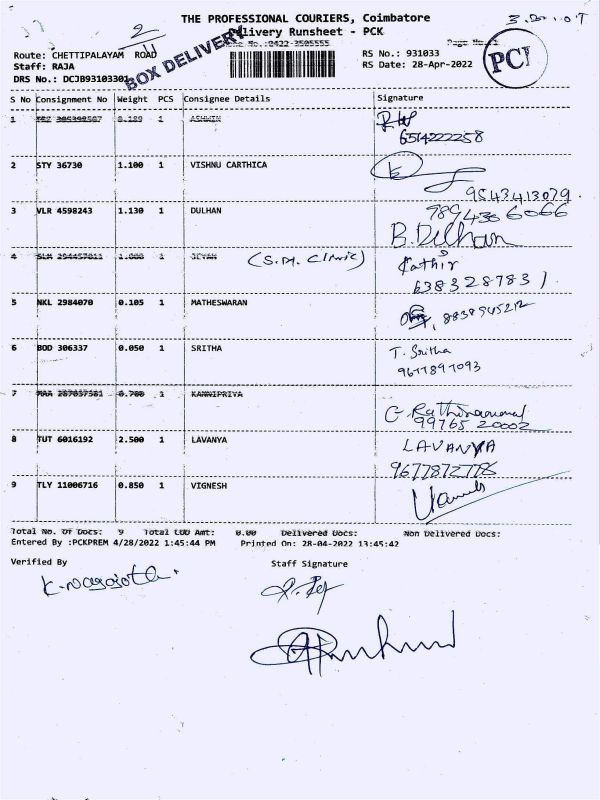 THE PROFESSIONAL COURIERS, Coimbatore
Delivery Runsheet - PCK
2
BOX DELIVERY
PCI
Route: CHETTIPALAYAM ROAD
Staff: RAJA
DRS No.: DCJB93103301
RS No.: 931033
RS Date: 28-Apr-2022
S No Consignment No Weight PCS Consignee Details Signature
1 0.189 1 ASHWIN
6514222258
2 STY 36730 1.100 1 VISHNU CARTHICA
9543413079.
3 VLR 4598243 1.130 1 DULHAN
9894306066
B.Dulhan
4 1.000 1 JEVAN (S.M. Clinic) Kathir
6383287831
5 NKL 2984070 0.105 1 MATHESWARAN
6 BOD 306337 0.050 1 SRITHA T. Sritha
9677897093
7 0.700 1 KANNIPRIYA
99765 20002
8 TUT 6016192 2.500 1 LAVANYA LAVANYA
9677872778
9 TLY 11006716 0.850 1 VIGNESH
Total No. Of Docs: 9 Total COD Amt: 0.00 Delivered Docs: Non Delivered Docs:
Entered By :PCKPREM 4/28/2022 1:45:44 PM Printed On: 28-04-2022 13:45:42
Verified By Staff Signature